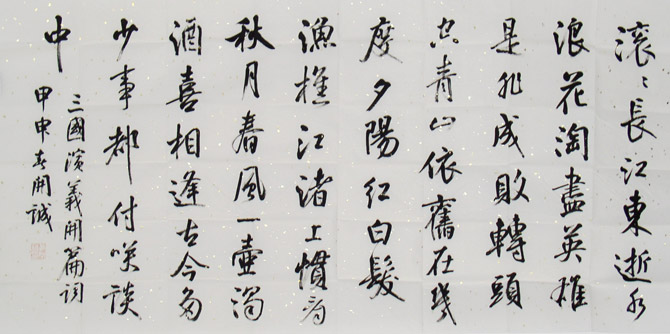 滚〻長江東逝水
浪花淘盡英雄
是非成敗轉頭
空青山依舊在幾
度夕陽紅白髮
漁樵江渚上慣看
秋月春風一壷濁
酒喜相逢古今多
少事都付笑談
中
三國演義開篇詞
甲申春開誠